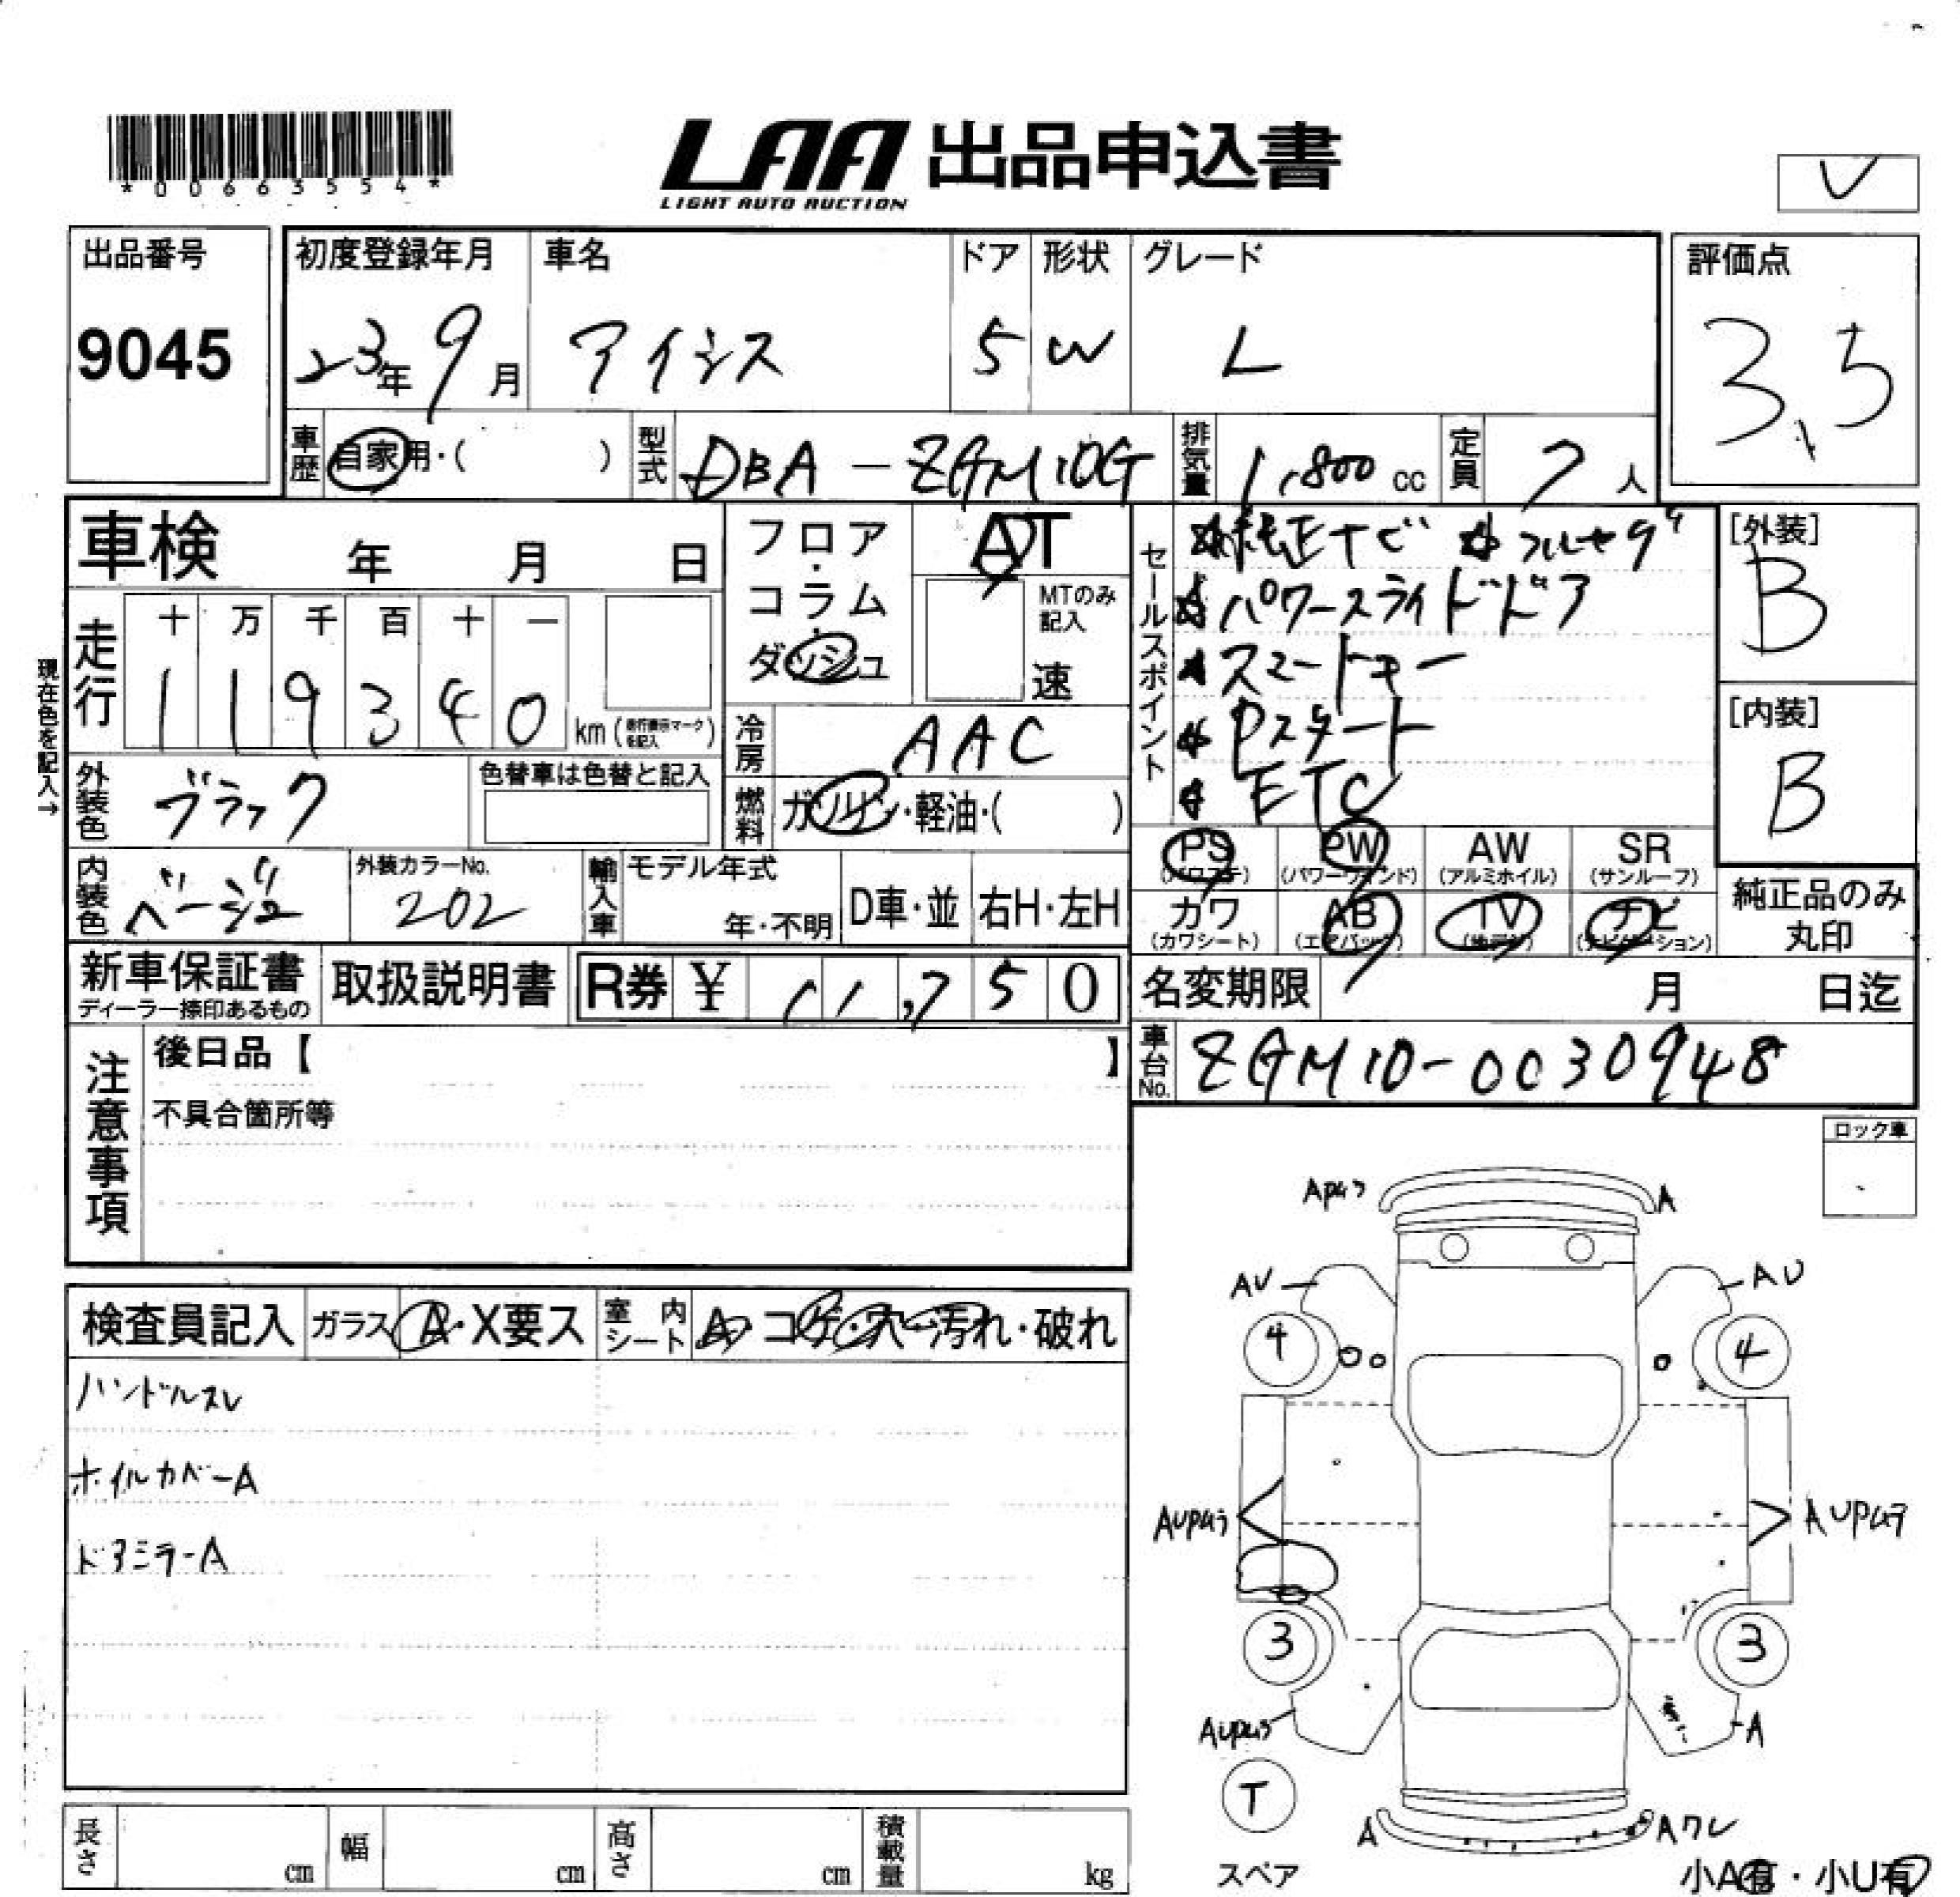 *00663554*
LAA 出品申込書
LIGHT AUTO AUCTION
出品番号
9045
初度登録年月
23年 9月
車名
アイシス
ドア
5
形状
W
グレード
L
評価点
3.5
車歴 自家用・( )
型式 DBA-ZGM10G
排気量 1,800 cc
定員 7 人
車検 年 月 日
フロア・コラム・ダッシュ
AT
MTのみ記入
速
現在色を記入→
走行
十 万 千 百 十 一
1 1 9 3 4 0 km(走行表示マークを記入)
冷房 AAC
燃料 ガソリン・軽油・( )
外装色 ブラック
色替車は色替と記入
内装色 ベージュ
外装カラーNo.
202
輸入車
モデル年式
年・不明
D車・並
右H・左H
セールスポイント
純正ナビ フルセグ
パワースライドドア
スマートキー
Pスタート
ETC
[外装]
B
[内装]
B
PS (パワステ)
PW (パワーウインド)
AW (アルミホイル)
SR (サンルーフ)
カワ (カワシート)
AB (エアバック)
TV
ナビ (ナビゲーション)
純正品のみ
丸印
新車保証書
ディーラー捺印あるもの
取扱説明書
R券 ¥ 11,750
名変期限 月 日迄
車台No. ZGM10-0030948
注意事項
後日品【 】
不具合箇所等
ロック車
検査員記入
ガラス A・X要ス
室内シート A・コゲ・スレ・汚れ・破れ
ハンドルスレ
ホイルカバーA
ドアミラーA
A
AU
AU
4
4
3
3
A
T
スペア
A
Aワレ
小A有・小U有
長さ cm
幅 cm
高さ cm
積載量 kg